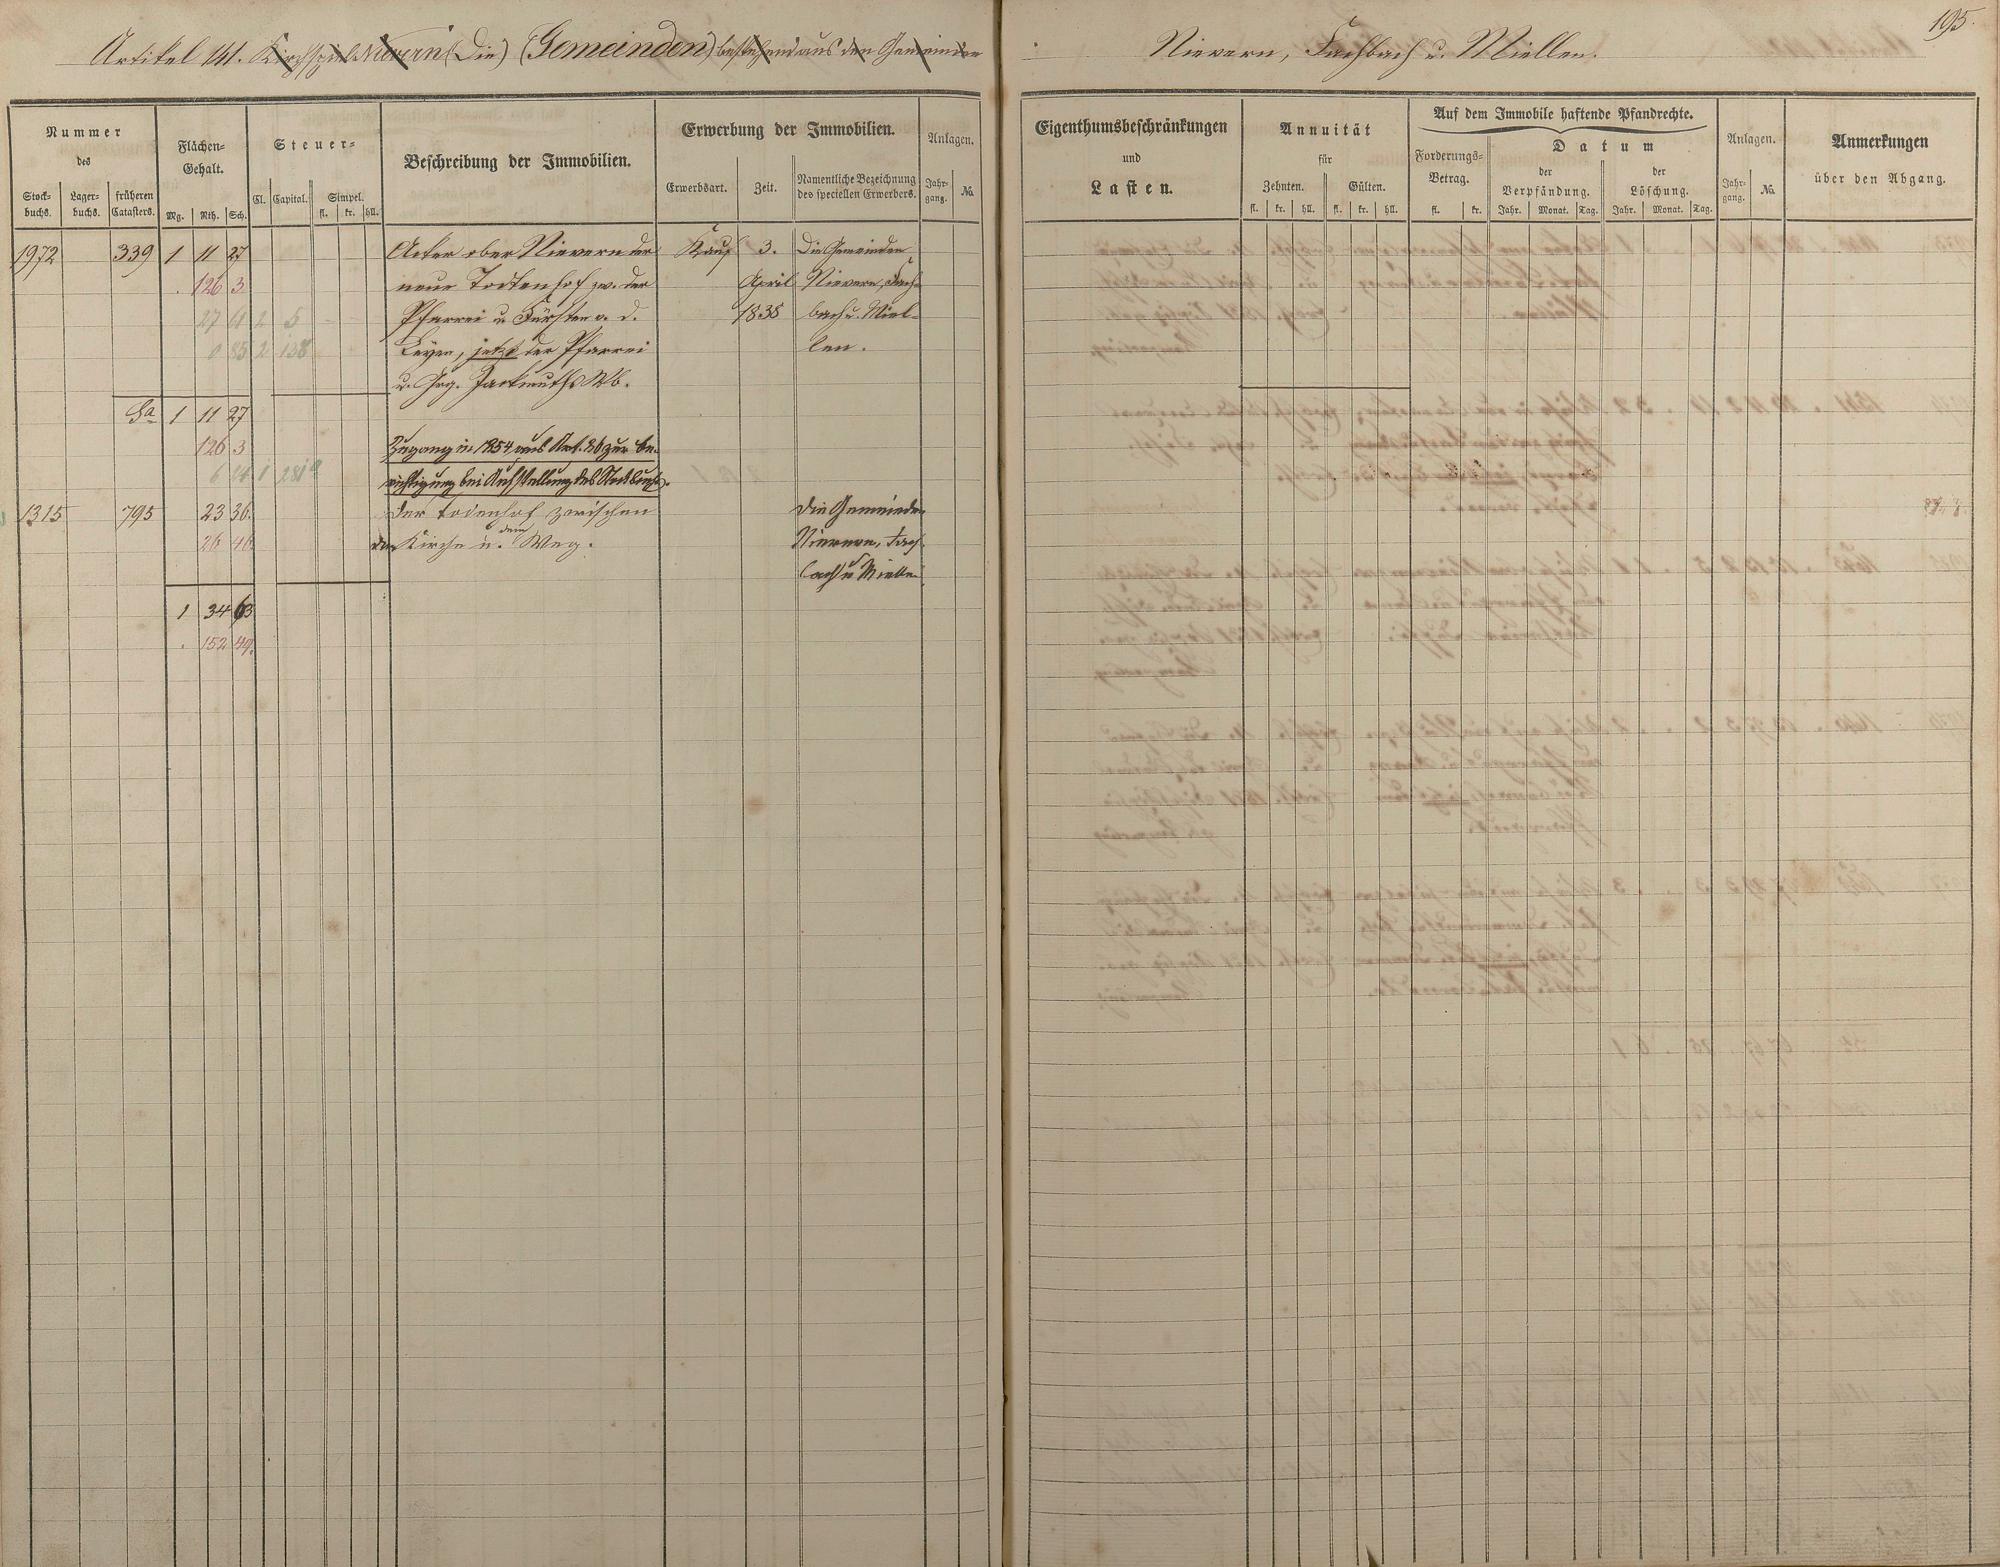 195.
Artikel 141. Kirchspiel Nievern (Die) (Gemeinden) bestehend aus den Gemeinden Nievern, Fachbach u. Miellen.
Nummer des
Stock-buchs.
Lager-buchs.
früheren Catasters.
Flächen-Gehalt.
Mg. Rth. Sch.
Steuer-
Cl. Capital. Simpel.
fl. kr. hll.
Beschreibung der Immobilien.
Erwerbung der Immobilien.
Erwerbsart. Zeit. Namentliche Bezeichnung des speciellen Erwerbers.
Anlagen.
Jahr-gang. No.
Eigenthumsbeschränkungen
und
Lasten.
Annuität
für
Zehnten. Gülten.
fl. kr. hll. fl. kr. hll.
Auf dem Immobile haftende Pfandrechte.
Forderungs-Betrag.
fl. kr.
Datum
der Verpfändung. der Löschung.
Jahr. Monat. Tag. Jahr. Monat. Tag.
Anlagen.
Jahr-gang. No.
Anmerkungen
über den Abgang.
1972 339 1 11 27 Acker ober Nievern der Kauf 3. Die Gemeinden
126 3 neue Todtenhof zw. der April Nievern, Fach-
27 61 2 5 Pfarrei u. Fürsten v. d. 1835 bach u. Miel-
0 85 2 138 Leyen, jetzt der Pfarrei len.
u. Grg. Zackmuths Wb.
Sa 1 11 27
126 3 Zugang in 1854 aus Art. 26 zur Be-
richtigung bei Aufstellung des Stockbuchs.
1315 795 23 36. Der Todenhof zwischen Die Gemeinden
26 46. der Kirche u. dem Weg. Nievern, Fach-
bach u Miellen
1 34 63
152 49.